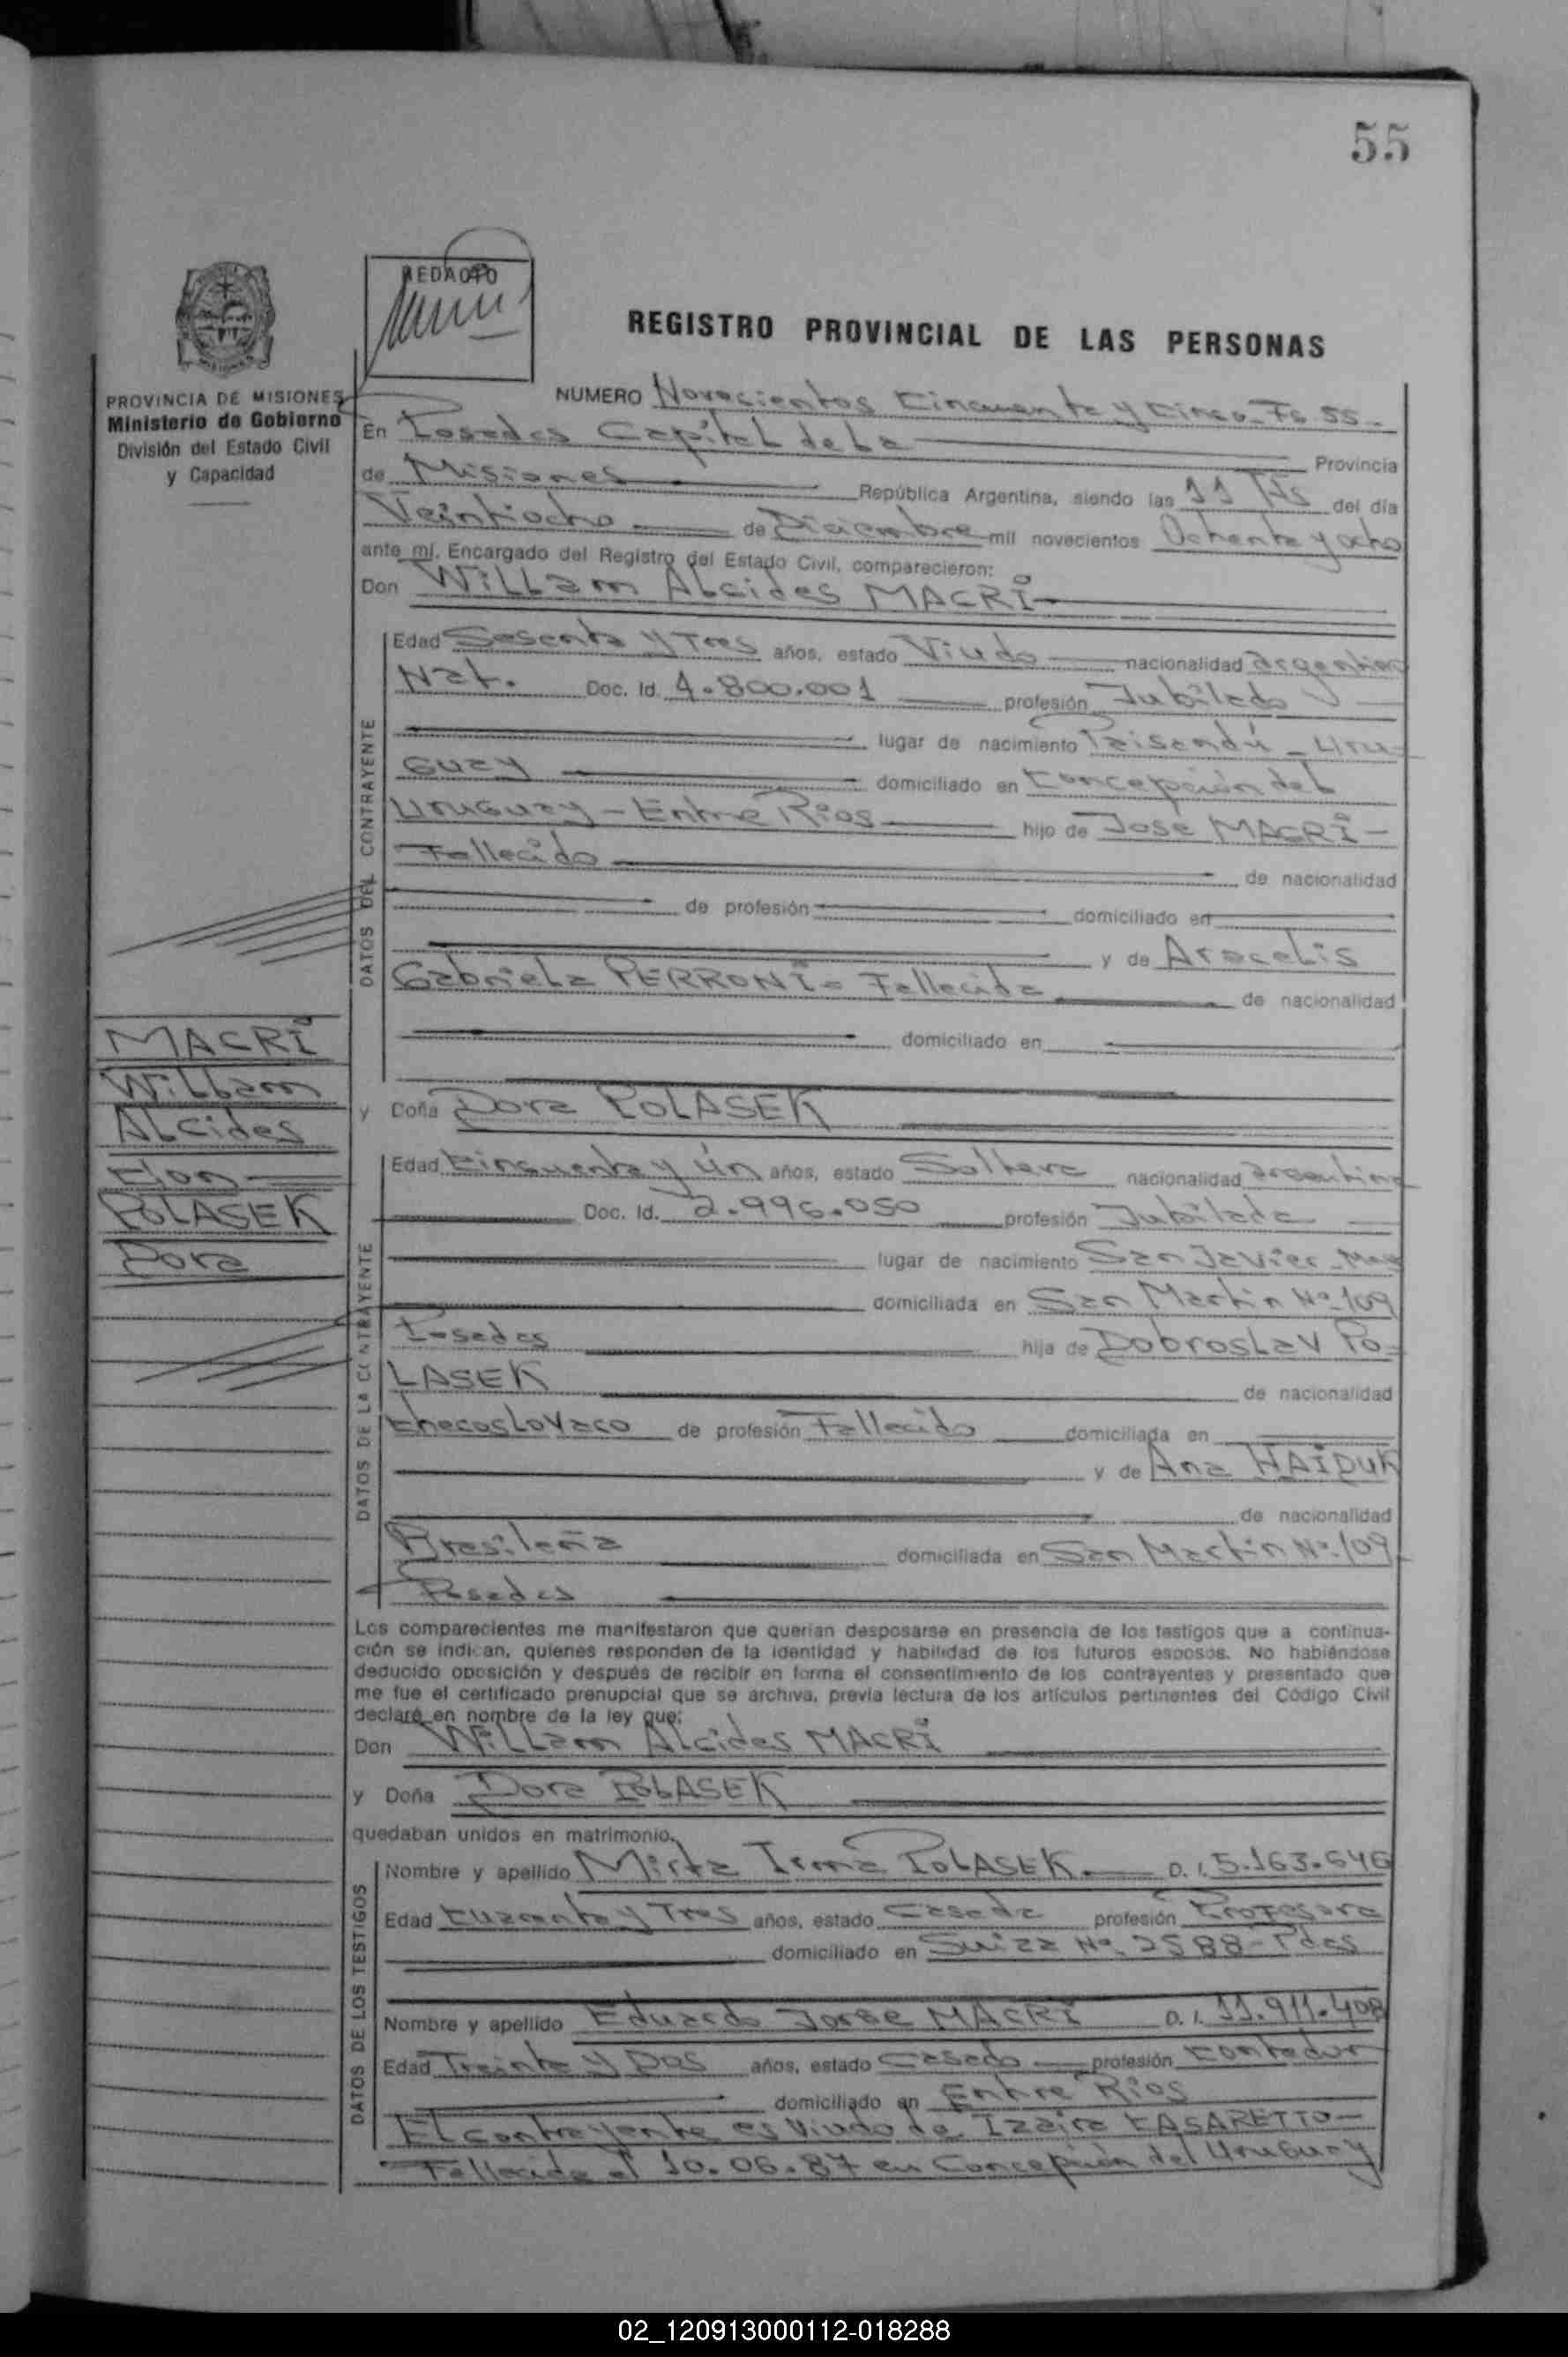 55
REDACTO
REGISTRO PROVINCIAL DE LAS PERSONAS
PROVINCIA DE MISIONES
Ministerio de Gobierno
División del Estado Civil
y Capacidad
NUMERO Novecientos Cincuenta y Cinco. Fs 55.
En Posadas Capital de La Provincia
de Misiones República Argentina, siendo las 11 Hs del día
Veintiocho de Diciembre mil novecientos Ochenta y ocho
ante mí, Encargado del Registro del Estado Civil, comparecieron:
Don William Alcides MACRI
DATOS DEL CONTRAYENTE
Edad Sesenta y Tres años, estado Viudo nacionalidad argentino
Nat. Doc. Id. 4.800.001 profesión Jubilado
lugar de nacimiento Paisandú - Uru-
guay domiciliado en Concepción del
Uruguay - Entre Ríos hijo de José MACRI -
Fallecido de nacionalidad
de profesión domiciliado en
y de Aracelis
Gabriela PERRONI = Fallecida de nacionalidad
domiciliado en
MACRI
William
Alcides
Con
POLASEK
Dora
y Doña Dora POLASEK
DATOS DE LA CONTRAYENTE
Edad Cincuenta y Un años, estado Soltera nacionalidad argentina
Doc. Id. 2.996.050 profesión Jubilada
lugar de nacimiento San Javier - Mnes
domiciliada en San Martin Nº 109
Posadas hija de Dobroslav PO=
LASEK de nacionalidad
Checoslovaco de profesión Fallecido domiciliada en
y de Ana HAIDUK
de nacionalidad
Brasileña domiciliada en San Martin Nº 109
Posadas
Los comparecientes me manifestaron que querían desposarse en presencia de los testigos que a continua-
ción se indican, quienes responden de la identidad y habilidad de los futuros esposos. No habiéndose
deducido oposición y después de recibir en forma el consentimiento de los contrayentes y presentado que
me fue el certificado prenupcial que se archiva, previa lectura de los artículos pertinentes del Código Civil
declaré en nombre de la ley que:
Don William Alcides MACRI
y Doña Dora POLASEK
quedaban unidos en matrimonio.
DATOS DE LOS TESTIGOS
Nombre y apellido Mirta Irma POLASEK. D. I. 5.163.646
Edad Cuarenta y Tres años, estado Casada profesión Profesora
domiciliado en Suiza Nº 2588 - Pdas
Nombre y apellido Eduardo Jorge MACRI D. I. 11.911.408
Edad Treinta y Dos años, estado Casado profesión Contador
domiciliado en Entre Ríos
El contrayente es Viudo de Izaira CASARETTO -
Fallecida el 10.06.87 en Concepción del Uruguay
02_120913000112-018288